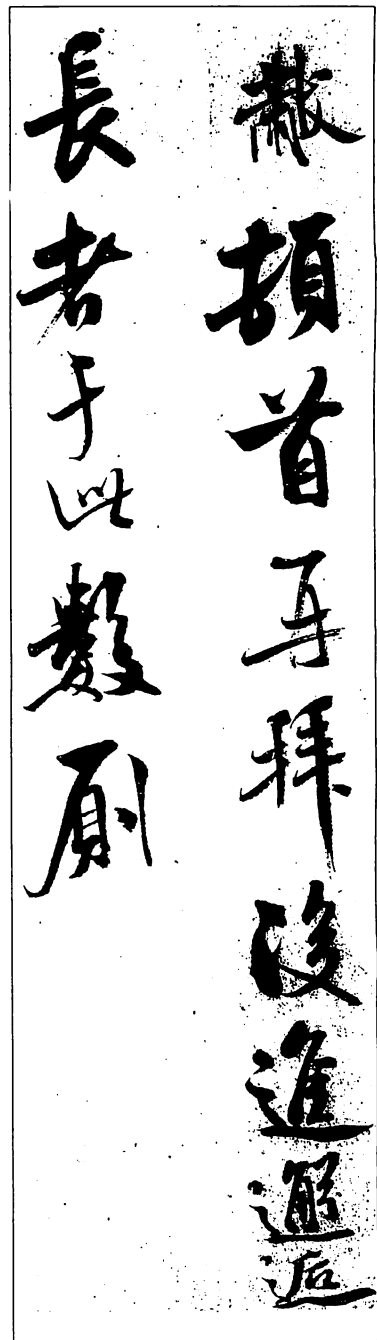 黻頓首再拜後進邂逅
長者于此數廁